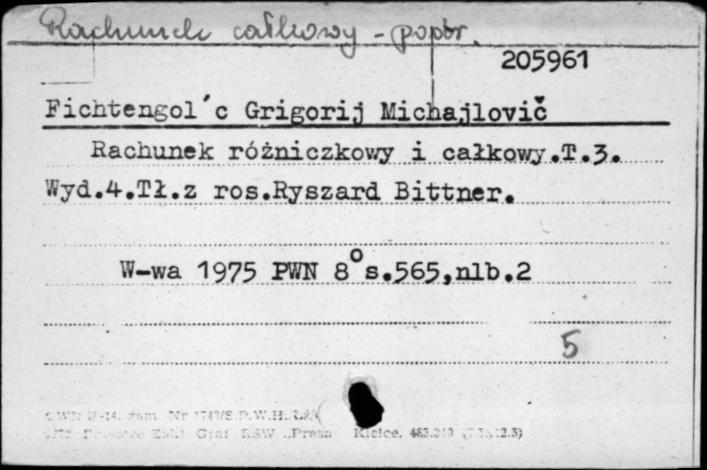 Rachunek całkowy - popbr.
205961
Fichtengol´c Grigorij Michajlovič
Rachunek różniczkowy i całkowy.T.3.
Wyd.4.Tł.z ros.Ryszard Bittner.
W-wa 1975 PWN 8° s.565,nlb.2
5
Zakł. Graf. RSW „Prasa" Kielce.